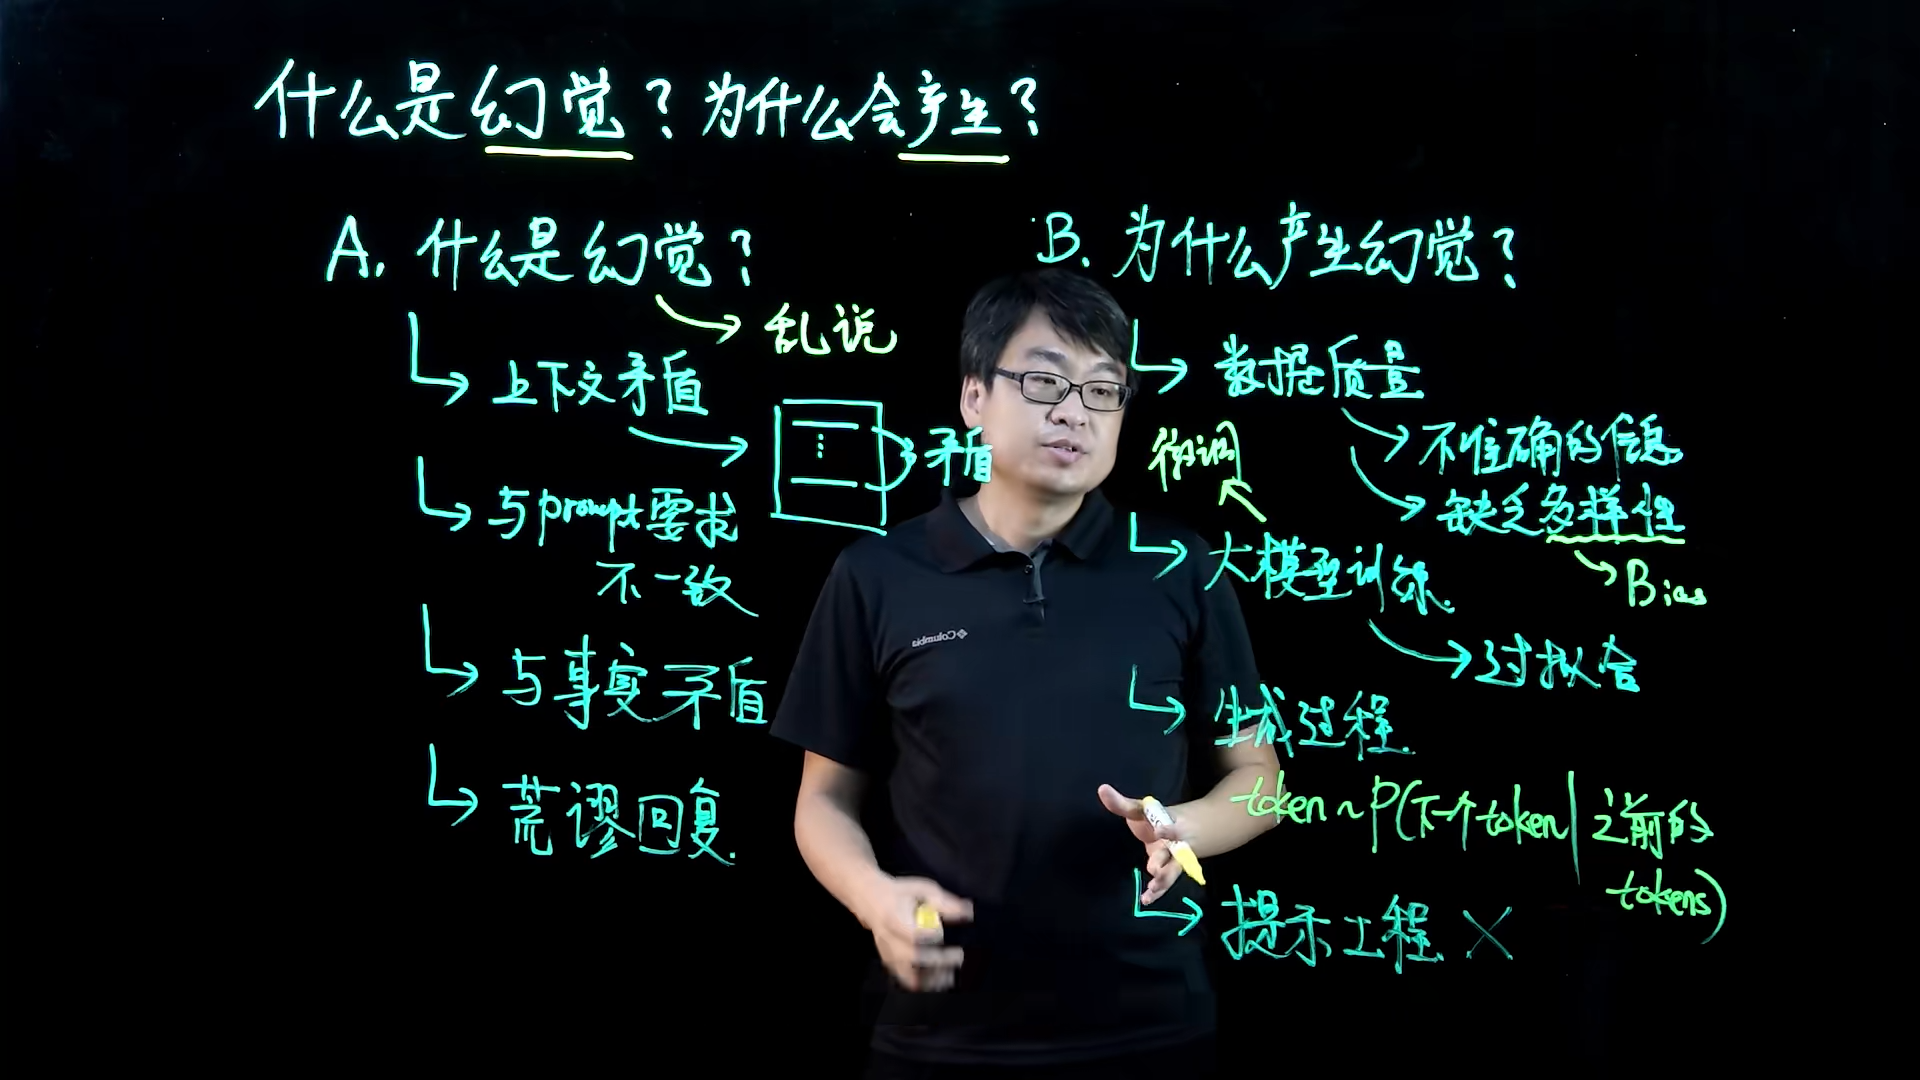 什么是幻觉？为什么会产生？
A. 什么是幻觉？
乱说
上下文矛盾
矛盾
与prompt要求
不一致
与事实矛盾
荒谬回复.
B. 为什么产生幻觉？
数据质量
不准确的信息
缺乏多样性
Bias
微调
大模型训练.
过拟合
生成过程.
token ~ P(下一个token | 之前的
tokens)
提示工程 ×
Columbia